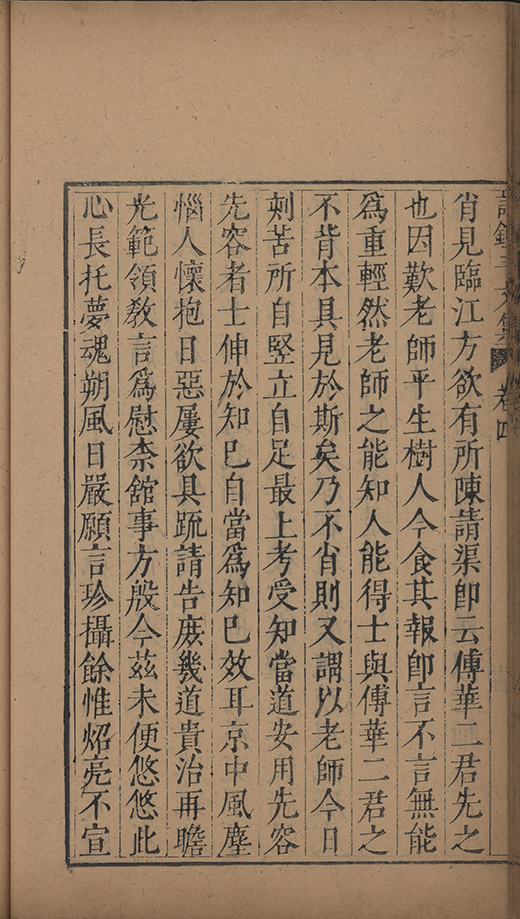 肖見臨江方欲有所陳請渠即云傅華二君先之
也因歎老師平生樹人今食其報即言不言無能
爲重輕然老師之能知人能得士與傅華二君之
不背本具見於斯矣乃不肖則又謂以老師今日
刺苦所自竪立自足最上考受知當道安用先容
先容者士伸於知巳自當爲知巳效耳京中風塵
惱人懷抱日惡屢欲具疏請告庻幾道貴治再瞻
光範領敎言爲慰柰館事方殷今茲未便悠悠此
心長托夢魂朔風日嚴願言珍攝餘惟炤亮不宣
卷四